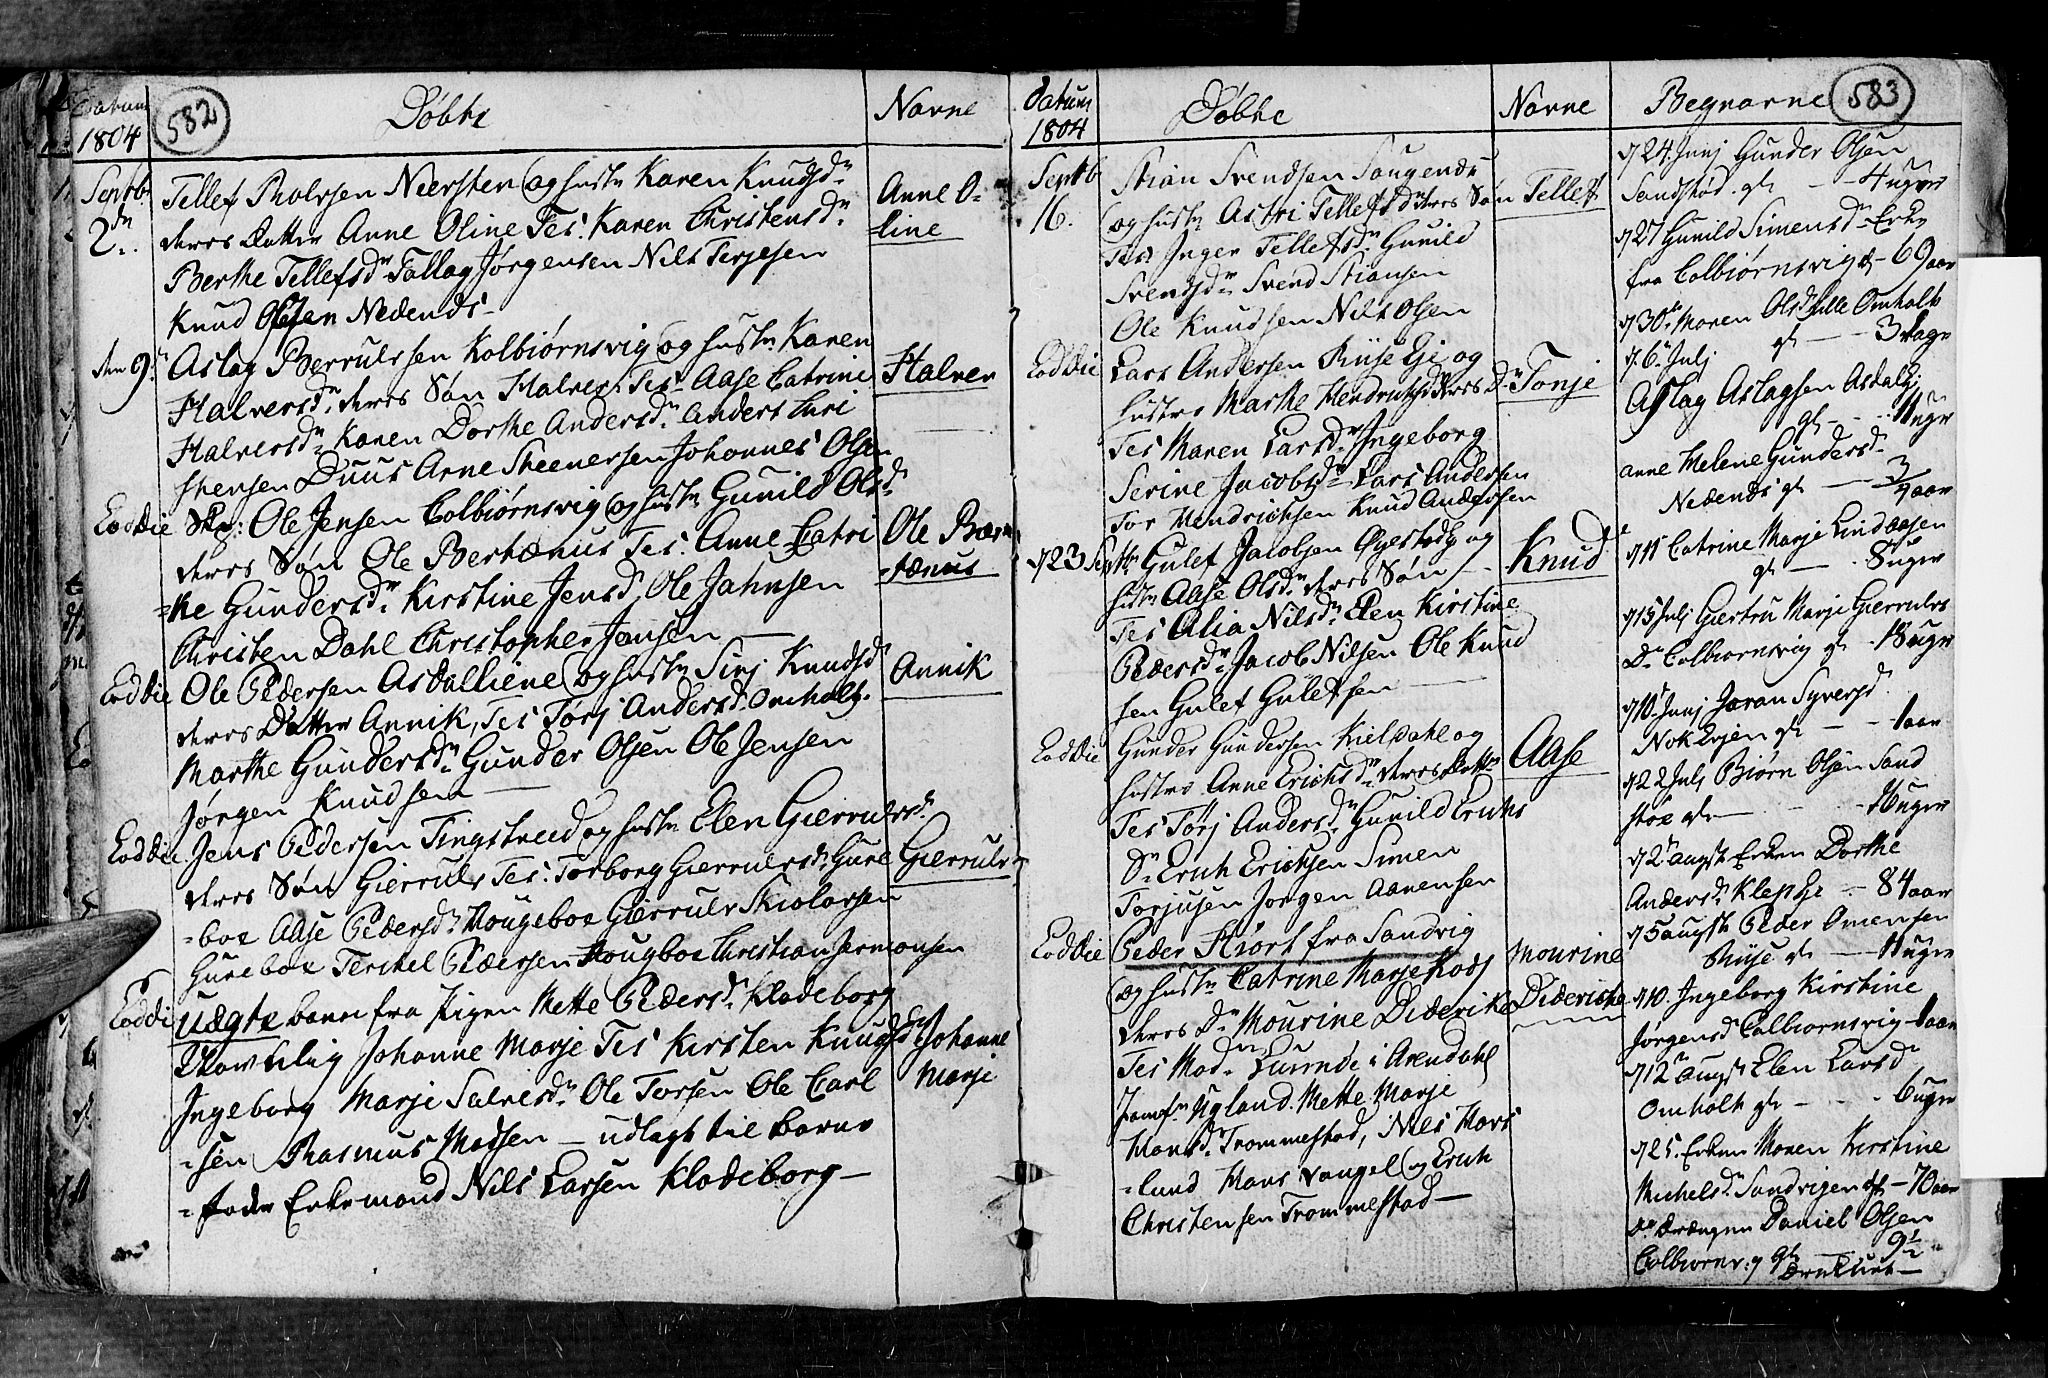 Datum
1804
582
Døbte
Navne
Septb:
2den
Tellef Thorsen Neersten og hustr Karen Knudsdr
deres Datter Anne Oline Tes: Karen Christensdr
Berthe Tellefsdr Tallag Jørgensen Nils Terjesen
Knud Olsen Nedends
Anne O-
-line
den 9
Aslag Berrulfsen Kolbiørnsvig og hustr Karen
Halversdr deres Søn Halver Tes Aase Catrine
Halversdr Karen Dorthe Andersdr Anders
stensen Duus Arne Steenersen Johannes Olsen
Halver
Eoddie
Skp: Ole Jensen Colbiørnsvig og hustr Gunild Olsdr
deres Søn Ole Bertænus Tes: Anne Catri
-ne Gundersdr Kirstine Jensdr Ole Jahnsen
Christen Dahl Christopher Jensen
Ole Bær
-tænus
Eoddie
Ole Pedersen Asdalliene og hustr Sirj Knudsdr
deres Datter Annik, Tes Torj Andersdr Omholt
Marthe Gundersdr Gunder Olsen Ole Jensen
Jørgen Knudsen
Annik
Eoddie
Jens Pedersen Tingstveed og hustr Elen Gierrulsdr
deres Søn Gierrulv Tes: Torborg Gierrulvsdr Gure
-boe Aase Pedersdr Hougeboe Gierrulv Skiolorsen
Gureboe Terckel Pedersen Hougboe Christian Jermonsen
Gierrulv
Eoddi
Uægte barn fra Pigen Mette Pedersdr Klodeborg
Navnlig Johanne Marje Tes Kirsten Knudsdr
Ingeborg Marje Salvesdr Ole Torsen Ole Carl
-sen Rasmus Madsen — udlagt til barne
-fader Enkemand Nils Larsen Klodeborg —
Johanne
Marje
Datum
1804
Døbte
Navne
Septb
16.
Stian Svendsen Saugende
og hustr Astri Tellefsdr deres Søn
Tes Inger Tellefsdr Gunild
Svendsdr Svend Stiansen
Ole Knudsen Nils Olsen
Tellef
Eoddie
Lars Andersen Riise Eje og
hustro Marthe Hendrichsdr deres Dr
Tes Maren Larsdr Ingeborg
Serine Jacobsdr Lars Andersen
Tor Hendrichsen Knud Andersen
Tonje
d 23 Sept
Gulef Jacobsen Øyestad og
hustr Aase Olsdr deres Søn
Tes Alia Nilsdr Elen Kirstine
Pedersdr Jacob Nilsen Ole Knud
sen Gulef Gulefsen
Knud
Eoddie
Gunder Gundersen Kieldahl og
hustro Anne Erichsdr deres Dattr
Tes Torj Andersdr Gunild Erichs
Dr Erich Erichsen Simen
Torjusen Jorgen Aanensen
Aase
Eoddie
Peder Hiort fra Sandvig
og hustr Catrine Marje
deres Dr Mourine Diderike
Tes Mad: Lunde i Arendahl
Jomfr Ugland. Mette Marje
Hansdr Trommestad, Niels Hors
-lund Hans Vangel og Erich
Christensen Trommestad —
Mourine
Dideriche
Begravne
583
d 24. Junj Gunder Olsen
Sandstød gl — 4 uger
d 27 Gunild Simensdr Enke
fra Colbiørnsvig gl — 69 aar
d 30te Maren Olsdr Lille Omholt
gl — 3 dage
d. 6te Julj
Aslag Aslagsen Asdal Ej
gl — 11 uger
anne Helene Gundersdr
Nedends gl — 3/4 aar
d 11 Catrine Marje Lindaasen
gl — 8 uger
d 15 Julj Giertru Marje Gierrulvs
Dr Colbiørnsvig gl — 18 uger
d 10 Junj Joran Syversdr
gl — 1 aar
d 22 Julj Biørn Olsen Sand
støe gl — 16 uger
d 2 augst Enken Dorthe
Andersdr Klep Eje — 84 aar
d 5 augst Peder Omensen
Riise gl — 11 uger
d 10. Ingeborg Kirstine
Jørgensdr Colbiornsvig — 1 aar
d 12 augst Elen Larsdr
Omholt gl — 6 uger
d 25. Enken Maren Kirstine
Michelsdr Sandvigen gl — 70 aar
Do Drængen Daniel Olsen
Colbiornsv: gl 9 1/2